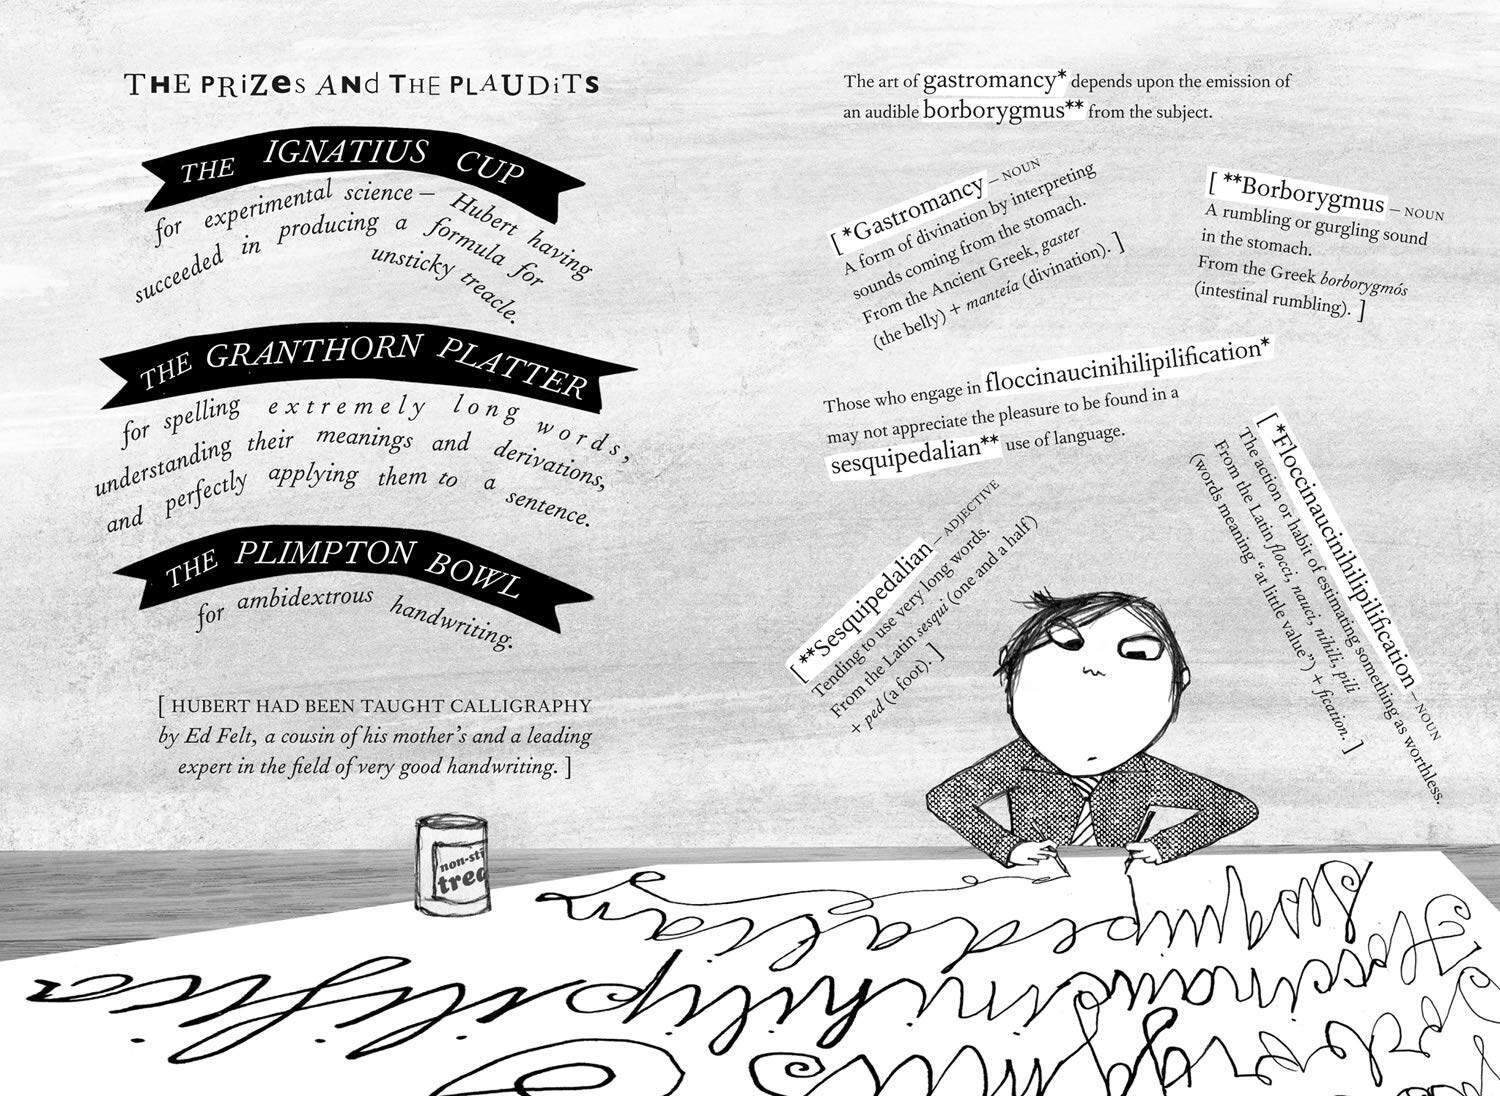 THE PRiZes ANd THE PLAUDiTS
THE IGNATIUS CUP
for experimental science – Hubert having
succeeded in producing a formula for
unsticky treacle.
THE GRANTHORN PLATTER
for spelling extremely long words,
understanding their meanings and derivations,
and perfectly applying them to a sentence.
THE PLIMPTON BOWL
for ambidextrous handwriting.
[ HUBERT HAD BEEN TAUGHT CALLIGRAPHY
by Ed Felt, a cousin of his mother's and a leading
expert in the field of very good handwriting. ]
The art of gastromancy* depends upon the emission of
an audible borborygmus** from the subject.
[ *Gastromancy – NOUN
A form of divination by interpreting
sounds coming from the stomach.
From the Ancient Greek, gaster
(the belly) + manteía (divination). ]
[ **Borborygmus – NOUN
A rumbling or gurgling sound
in the stomach.
From the Greek borborygmós
(intestinal rumbling). ]
Those who engage in floccinaucinihilipilification*
may not appreciate the pleasure to be found in a
sesquipedalian** use of language.
[ **Sesquipedalian – ADJECTIVE
Tending to use very long words.
From the Latin sesqui (one and a half)
+ ped (a foot). ]
[ *Floccinaucinihilipilification – NOUN
The action or habit of estimating something as worthless.
From the Latin flocci, nauci, nihili, pili
(words meaning “at little value”) + fication. ]
non-sti
trea
Sesquipedalian